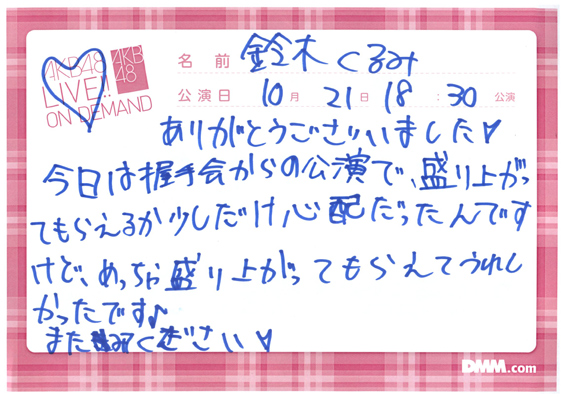 AKB48
LIVE!!
ON DEMAND
AKB
48
名前 鈴木くるみ
公演日 10月21日18:30公演
ありがとうございました♥
今日は握手会からの公演で、盛り上がっ
てもらえるか少しだけ心配だったんです
けど、めっちゃ盛り上がってもらえてうれし
かったです♪
またみてください♥
DMM.com